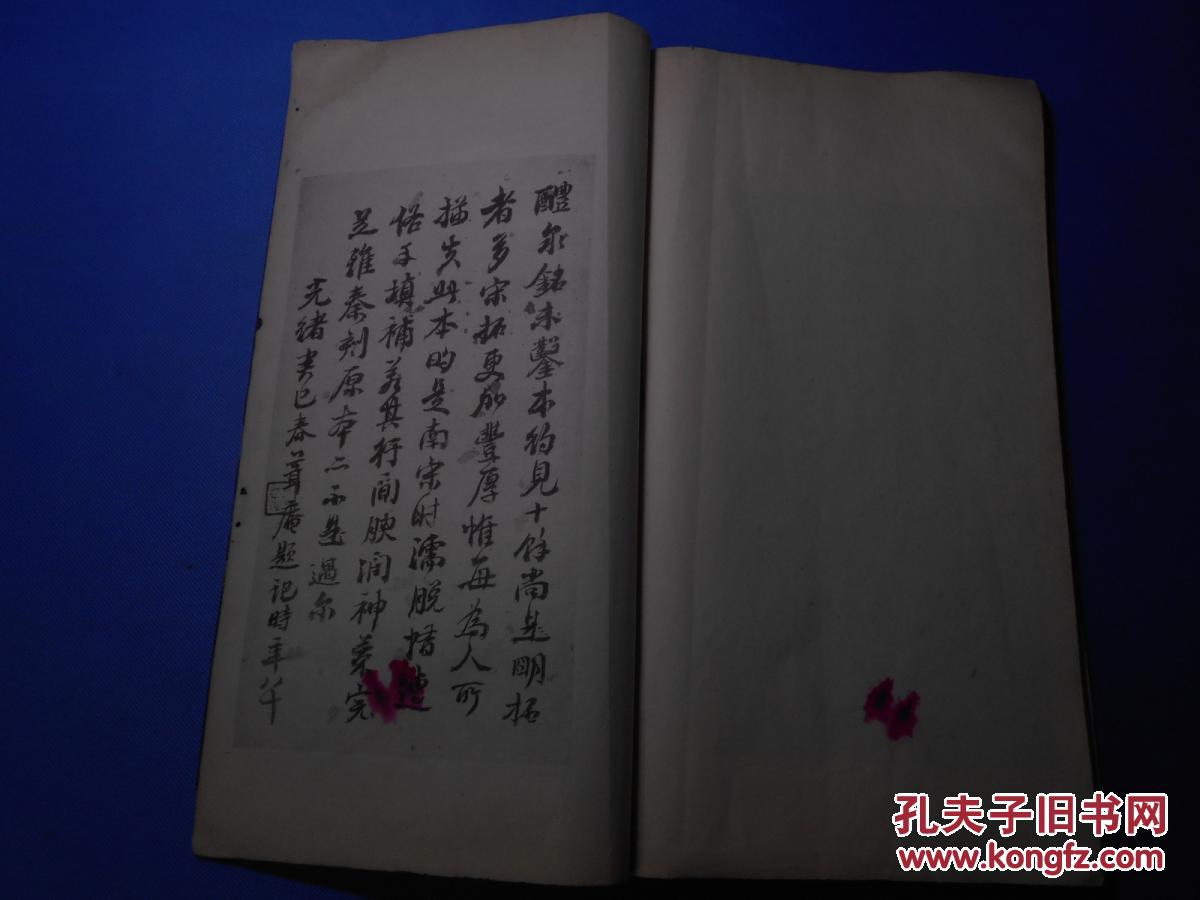 醴泉銘未鑿本約見十餘尚是明拓
者多宋拓更所豐厚惟每為人所
描失此本的是南宋时濡脱惜遭
俗手填補若其行间腴润神采完
足雖秦刻原本亦不是過尔
光绪癸巳春葺庵題記時年八十
孔夫子旧书网
www.kongfz.com